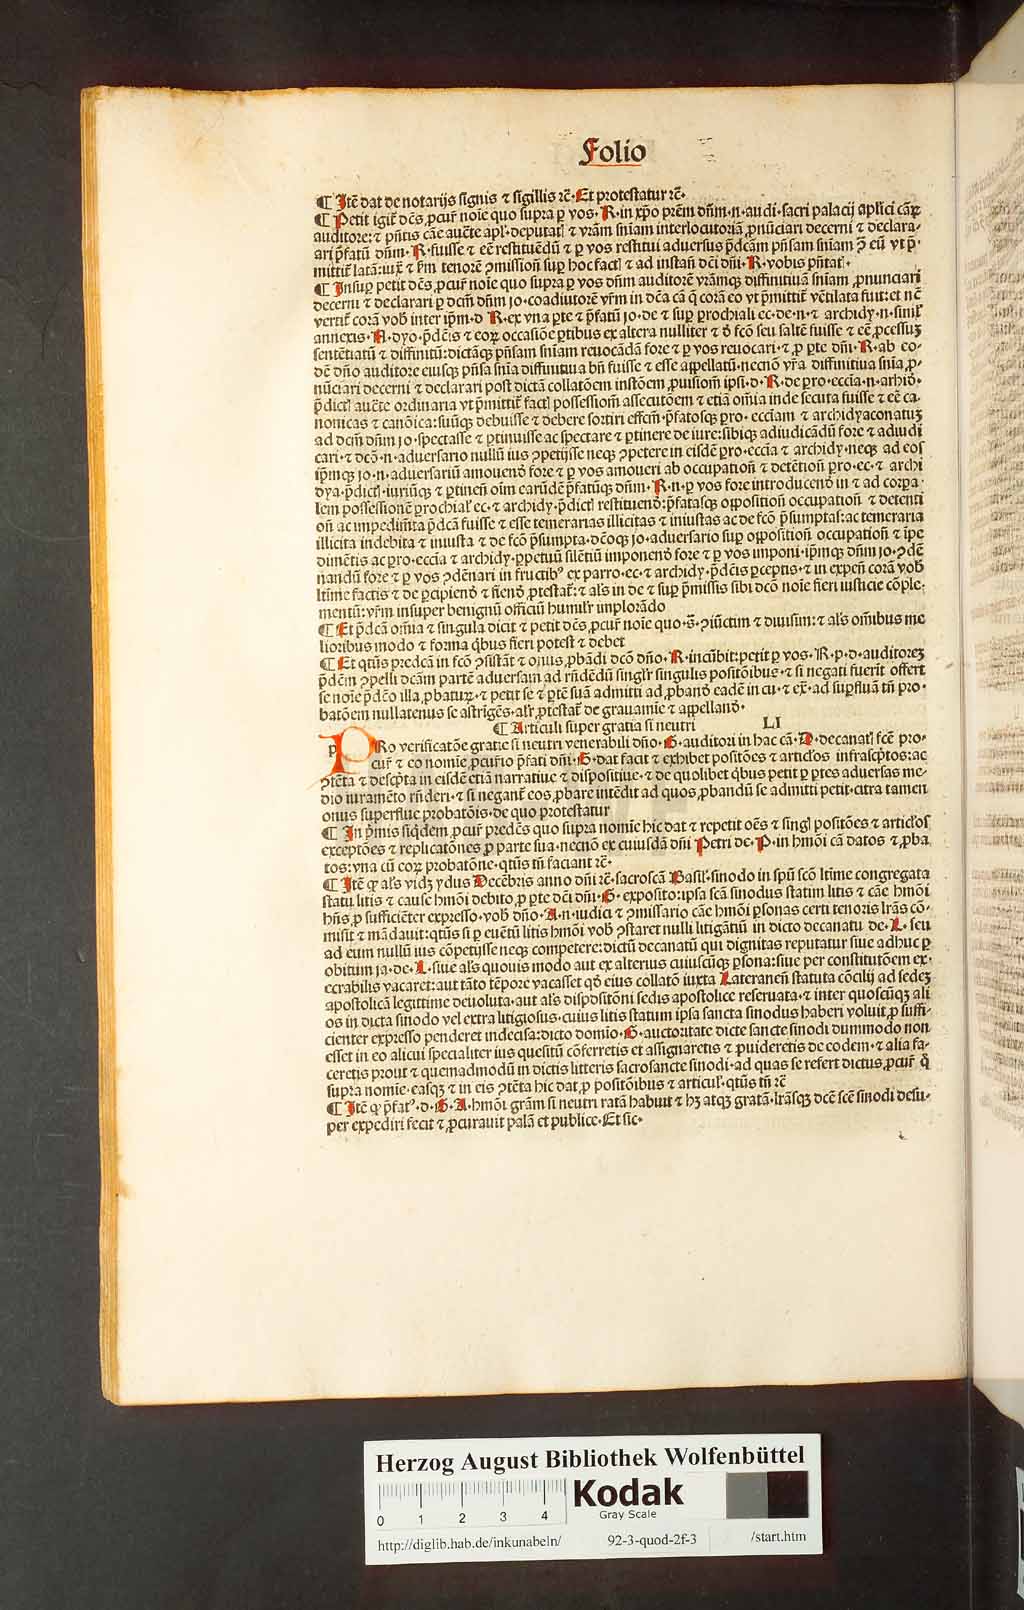 Folio
¶ Itē dat de notarijs signis ⁊ sigillis ⁊c̄. Et protestatur ⁊c̄.
¶ Petit igit̄ dc̄s ꝓcur̄ noīe quo supra ꝑ vos. R. in xp̄o prēm dn̄m. n. audi. sacri palacij aplici cāꝝ
auditorē: ⁊ pn̄tis cāe auctē apl. deputatꝭ ⁊ vrām sn̄iam interlocutoriā ꝓnūciari decerni ⁊ declara-
ari p̄fatū dn̄m. R. fuisse ⁊ eē restituēdū ⁊ ꝑ vos restitui aduersus p̄dcām pn̄sam sn̄iam ꝯ eū vt p̄-
mittit̄ latā: iuꝝ ⁊ fm tenorē ꝯmissiōn sup hoc factꝭ ⁊ ad instan̄ dc̄i dn̄i. R. vobis pn̄tatꝭ.
¶ Insup petit dc̄s ꝓcur̄ noīe quo supra ꝑ vos dn̄m auditorē vrāmqꝫ diffinitiuā sn̄iam ꝓnunciari
decerni ⁊ declarari ꝑ dcm̄ dn̄m jo. coadiutorē vr̄m in dc̄a cā q̄ corā eo vt p̄mittit̄ vētilata fuit: et nē
vertit̄ corā vob̄ inter ip̄m. d. R. ex vna ꝑte ⁊ p̄fatū jo. de ⁊ sup ꝑrochiali ec. de. n. ⁊ archidy. n. simil̄
annexis. A. dyo. p̄dc̄is ⁊ eoꝝ occasiōe ꝑtibus ex altera nulliter ⁊ d̄ fcō seu saltē fuisse ⁊ eē ꝓcessuꝫ
sentētiatū ⁊ diffinitū: dictāqꝫ pn̄sam sn̄iam reuocādā fore ⁊ ꝑ vos reuocari. ⁊ ꝓ ꝑte dn̄i. R. ab eo-
dē dn̄o auditore eiusqꝫ pn̄sa sn̄ia diffinitiua bn̄ fuisse ⁊ esse appellatū. necnō vr̄a diffinitiua sn̄ia ꝓ-
nūciari decerni ⁊ declarari post dictā collatōem instōem ꝓuisiōm ipsi. d. R. de ꝑro. eccīa. n. arhid̄.
p̄dictꝭ auctē ordinaria vt p̄mittit̄ factꝭ possessiōm assecutōem ⁊ etiā om̄ia inde secuta fuisse ⁊ eē ca-
nonicas ⁊ canōica: suūqꝫ debuisse ⁊ debere sortiri effcm̄. p̄fatosqꝫ ꝑro. ecciam ⁊ archidyaconatuꝫ
ad dcm̄ dn̄m jo. spectasse ⁊ ꝑtinuisse ac spectare ⁊ ꝑtinere de iure: sibiqꝫ adiudicādū fore ⁊ adiudi
cari. ⁊ dcō. n. aduersario nullū ius ꝯpetijsse neqꝫ ꝯpetere in eisdē ꝑro. eccia ⁊ archidy. neqꝫ ad eos
ip̄mqꝫ jo. n. aduersariū amouend̄ fore ⁊ ꝑ vos amoueri ab occupatiōn ⁊ detētiōn ꝑro. ec. ⁊ archi
dya. p̄dictꝭ. iuriūqꝫ ⁊ ꝑtinen̄ oīm earūdē p̄fatūqꝫ dn̄m. R. n. ꝑ vos fore introducend̄ in ⁊ ad corꝑa-
lem possessionē ꝑrochial̄ ec. ⁊ archidy. p̄dictꝭ restituend̄: p̄fatasqꝫ oppositiōn occupatiōn ⁊ detenti
on̄ ac impedim̄ta p̄dcā fuisse ⁊ esse temerarias illicitas ⁊ iniustas ac de fcō p̄sumptas: ac temeraria
illicita indebita ⁊ iniusta ⁊ de fcō p̄sumpta. dc̄oqꝫ jo. aduersario sup oppositiōn occupatiōn ⁊ ipe
dimētis ac ꝑro. eccia ⁊ archidy. ꝑpetuū silētiū imponend̄ fore ⁊ ꝑ vos imponi. ip̄mqꝫ dn̄m jo. ꝯdē
nandū fore ⁊ ꝑ vos ꝯdēnari in fructibꝰ ex parro. ec. ⁊ archidy. p̄dc̄is ꝑceptis. ⁊ in expen̄ corā vob̄
ltīme factis ⁊ de ꝑcipiend̄ ⁊ fiend̄ ꝓtestat̄: ⁊ al̄s in de ⁊ sup p̄missis sibi dcō noīe fieri iusticie cōple-
mentū: vr̄m insuper benignū officiū humilr̄ implorādo
¶ Et p̄dcā om̄ia ⁊ singula dicit ⁊ petit dc̄s ꝓcur̄ noīe quo. s̄. ꝯiūctim ⁊ diuisim: ⁊ al̄s om̄ibus me
lioribus modo ⁊ forma qb̄us fieri potest ⁊ debet
¶ Et qtūs predcā in fcō ꝯsistāt ⁊ onus ꝓbādi dcō dn̄o. R. incūbit: petit ꝑ vos. R. p. d. auditorez
p̄dēm ꝯpelli dcām partē aduersam ad rn̄dēdū singlr̄ singulis positōibꝯ. ⁊ si negati fuerit offert
se noīe p̄dcō illa ꝓbaturꝝ. ⁊ petit se ⁊ ꝑtē suā admitti ad ꝓband̄ eadē in cu. ⁊ ex̄. ad supfluā tn̄ pro-
batōem nullatenus se astrigēs. alr̄ ꝓtestat̄ de grauamīe ⁊ appelland̄.
¶ Articuli super gratia si neutri LI
PRo verificatōe gratie si neutri venerabili dn̄o. G. auditori in hac cā. D. decanatꝭ fcē pro-
cur̄ ⁊ eo nomīe ꝓcur̄io p̄fati dn̄i. G. dat facit ⁊ exhibet positōes ⁊ articlos infrascp̄tos: ac
ꝯtēta ⁊ descp̄ta in eisdē etiā narratiue ⁊ dispositiue. ⁊ de quolibet qb̄us petit ꝑ ꝑtes aduersas me-
dio iuramēto rn̄deri. ⁊ si negant̄ eos ꝓbare intēdit ad quos ꝓbandū se admitti petit. citra tamen
onus superflue probatōis. de quo protestatur
¶ In p̄mis siqdem ꝓcur̄ predc̄s quo supra nomīe hic dat ⁊ repetit oēs ⁊ singl̄ positōes ⁊ articlos
exceptōes ⁊ replicatōnes ꝓ parte sua. necnō ex cuiusdā dn̄i Petri de. P. in hmōi cā datos ⁊ ꝓba
tos: vna cū eoꝝ probatōne. qtūs tn̄ faciant ⁊c̄.
¶ Itē ꝙ al̄s vidꝫ ydus Decēbris anno dn̄i ⁊c̄. sacroscā Basil̄. sinodo in spū scō ltīme congregata
statu litis ⁊ cause hmōi debito ꝓ ꝑte dc̄i dn̄i. G. exposito: ipsa scā sinodus statim litis ⁊ cāe hmōi
hn̄s ꝓ sufficiēter expresso. vob̄ dn̄o. A. n. iudici ⁊ ꝯmissario cāe hmōi ꝑsonas certi tenoris lrās cō-
misit ⁊ mādauit: qtūs si ꝑ euētū litis hmōi vob̄ ꝯstaret nulli litigātiū in dicto decanatu de. L. seu
ad eum nullū ius cōpetijsse neqꝫ competere: dictū decanatū qui dignitas reputatur siue adhuc ꝑ
obitum ja. de. L. siue al̄s quouis modo aut ex alterius cuiuscūqꝫ ꝑsona: siue per constitutōem ex-
ecrabilis vacaret: aut tāto tēpore vacasset qd̄ eius collatō iuxta Lateraneū statuta cōcilij ad sedeꝫ
apostolicā legittime deuoluta. aut al̄s dispositōni sedis apostolice reseruata. ⁊ inter quoscūqꝫ ali
os in dicta sinodo vel extra litigiosus. cuius litis statum ipsa sancta sinodus haberi voluit ꝓ suffi-
cienter expresso penderet indecisa: dicto domio. G. auctoritate dicte sancte sinodi dummodo non
esset in eo alicui specialiter ius quesitū cōferretis et assignaretis ⁊ ꝓuideretis de eodem. ⁊ alia fa-
ceretis prout ⁊ quemadmodū in dictis litteris sacrosancte sinodi. ad quas se refert dictus ꝓcur̄ q̄
supra nomīe. easqꝫ ⁊ in eis ꝯtēta hic dat ꝓ positōibus ⁊ articul̄. qtūs tn̄ ⁊c̄
¶ Itē ꝙ p̄fatꝰ. d. G. A. hmōi grām si neutri ratā habuit ⁊ hꝫ atqꝫ gratā. lrāsqꝫ dcē scē sinodi desu-
per expediri fecit ⁊ ꝓcurauit palā et publice. Et sic.
Herzog August Bibliothek Wolfenbüttel
0 1 2 3 4
Kodak
Gray Scale
http://diglib.hab.de/inkunabeln/ 92-3-quod-2f-3 /start.htm